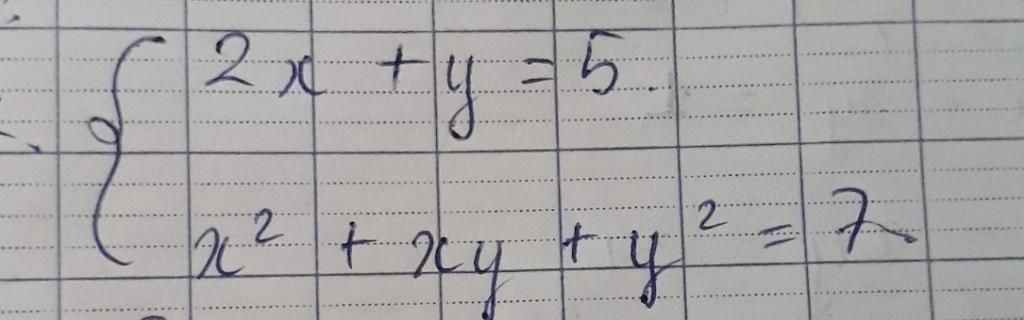 2x + y = 5.
x² + xy + y² = 7.